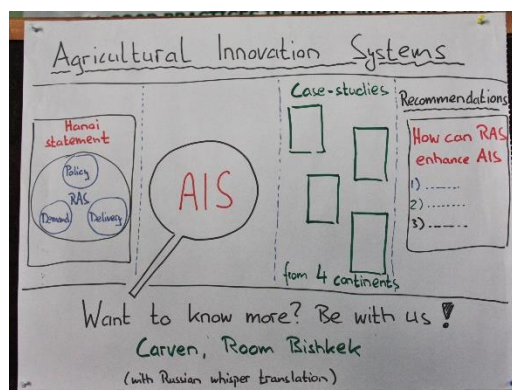 Agricultural Innovation Systems
Hanoi
statement
Policy
RAS
Demand
Delivery
AIS
Case-studies
from 4 continents
Recommendations
How can RAS
enhance AIS
1) ......
2) ......
3) ......
Want to know more? Be with us !
Carven, Room Bishkek
(with Russian whisper translation)